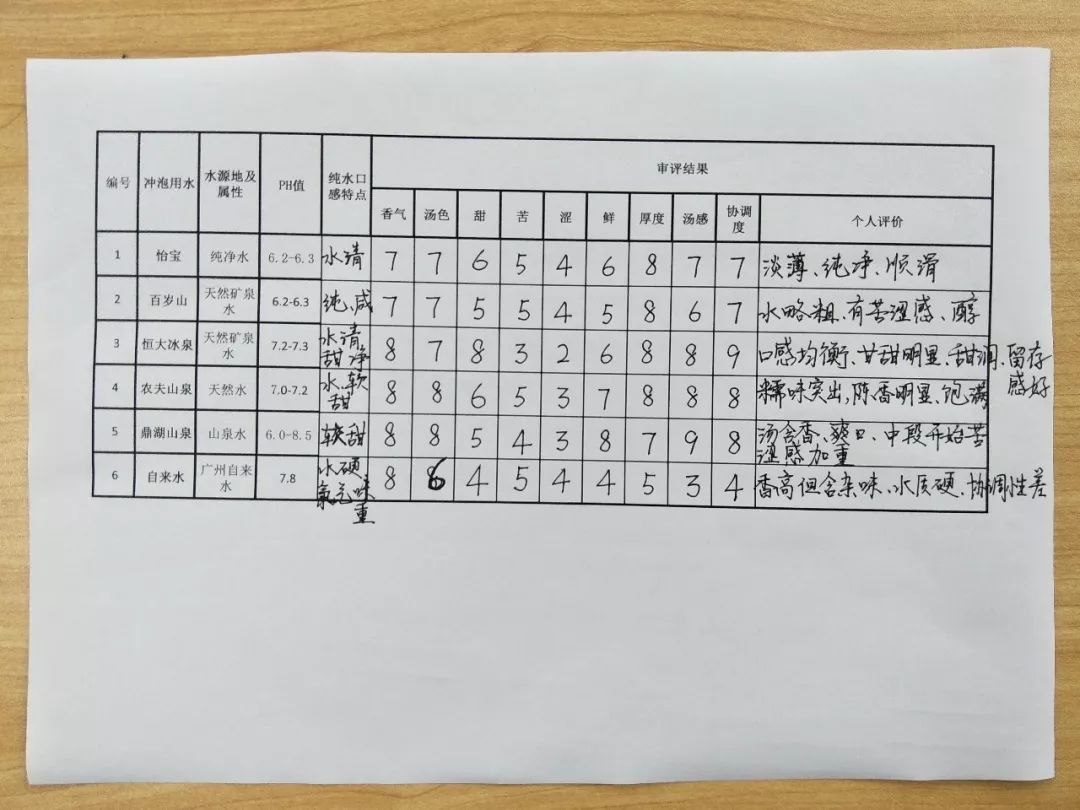 编号 冲泡用水 水源地及属性 PH值 纯水口感特点 审评结果
香气 汤色 甜 苦 涩 鲜 厚度 汤感 协调度 个人评价
1 怡宝 纯净水 6.2-6.3 水清 7 7 6 5 4 6 8 7 7 淡薄、纯净、顺滑
2 百岁山 天然矿泉水 6.2-6.3 纯、咸 7 7 5 5 4 5 8 6 7 水略粗、有苦涩感、醇
3 恒大冰泉 天然矿泉水 7.2-7.3 水清甜净 8 7 8 3 2 6 8 8 9 口感均衡、甘甜明显、甜润、留存感好
4 农夫山泉 天然水 7.0-7.2 水软甜 8 8 6 5 3 7 8 8 8 糯味突出,陈香明显、饱满
5 鼎湖山泉 山泉水 6.0-8.5 软甜 8 8 5 4 3 8 7 9 8 汤含香、爽口、中段开始苦涩感加重
6 自来水 广州自来水 7.8 水硬氯气味重 8 6 4 5 4 4 5 3 4 香高但含杂味、水质硬、协调性差